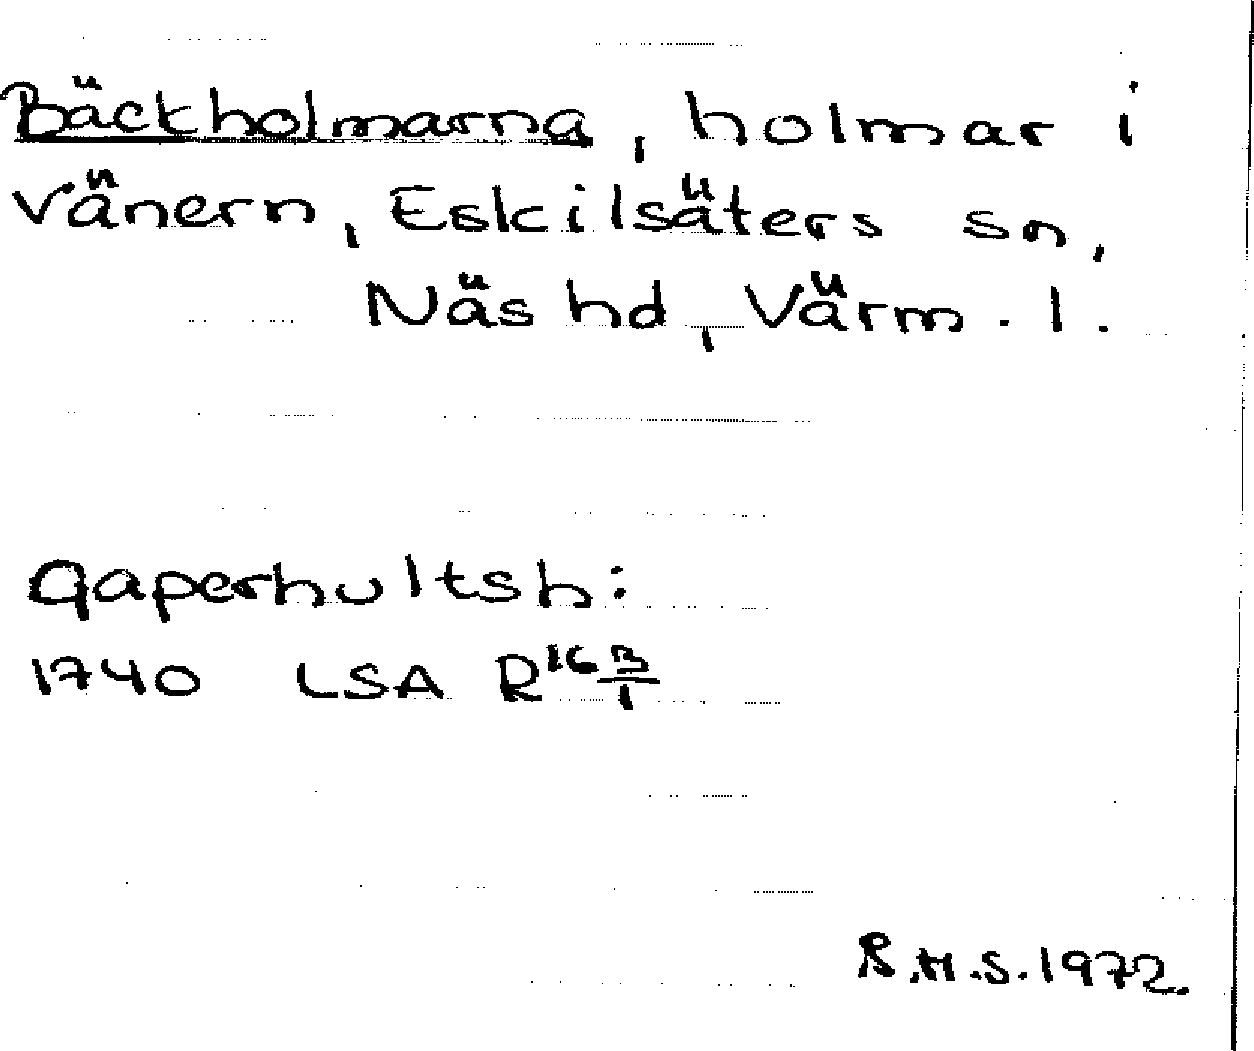 Bäckholmarna, holmar i
Vänern, Eskilsäters sn,
Näs hd, Värm. l.
Gaperhultsh:
1740 LSA R16 3/1
R.H.S. 1972.